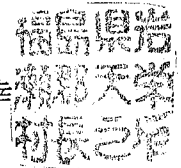 福島県岩
瀬郡天栄
村長之印